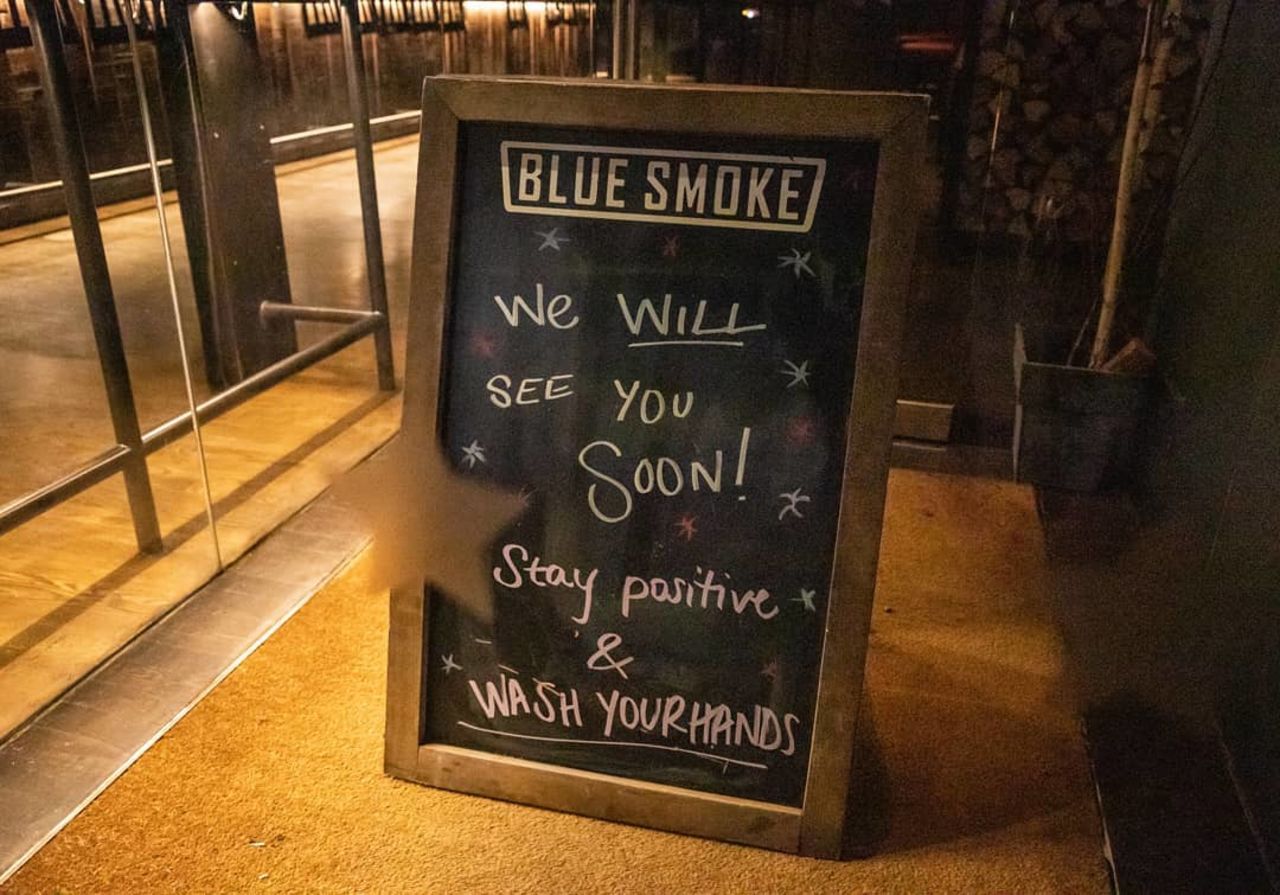 BLUE SMOKE
We WILL
SEE YOU
SOON!
Stay positive
&
WASH YOUR HANDS